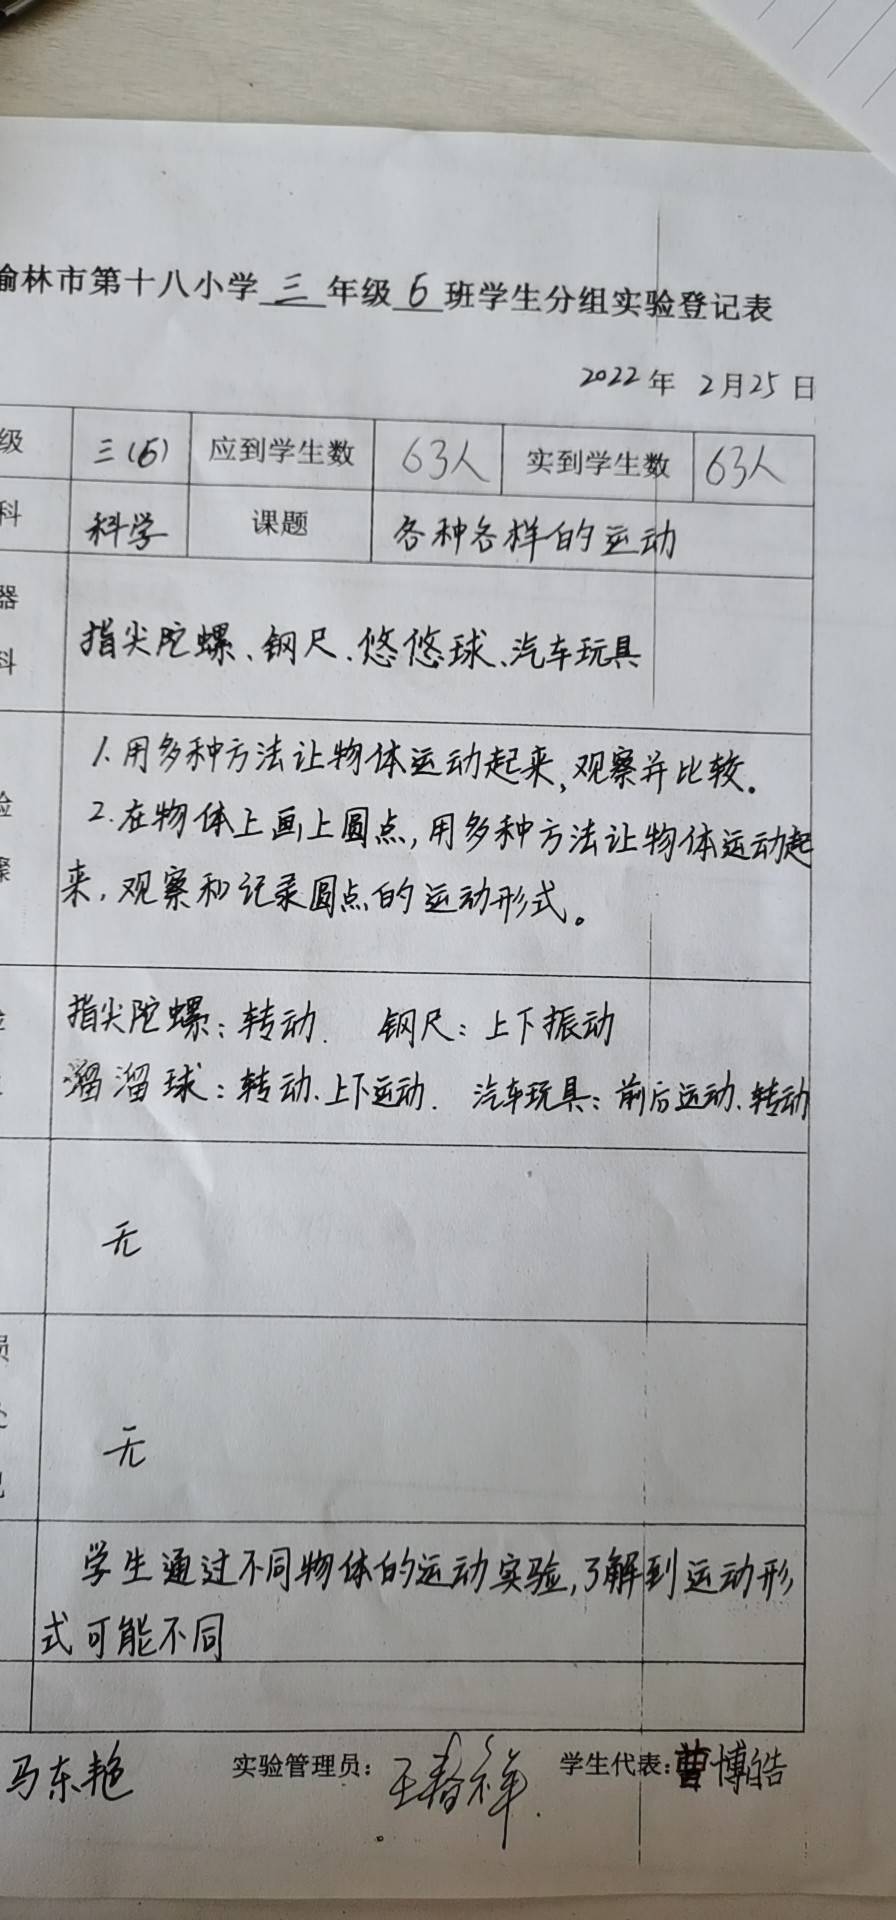 榆林市第十八小学 三 年级 6 班学生分组实验登记表
2022年 2月25日
级 三(6) 应到学生数 63人 实到学生数 63人
科 科学 课题 各种各样的运动
器
指尖陀螺、钢尺、悠悠球、汽车玩具
科
1.用多种方法让物体运动起来,观察并比较。
验 2.在物体上画上圆点,用多种方法让物体运动起
骤 来,观察和记录圆点的运动形式。
指尖陀螺:转动. 钢尺:上下振动
溜溜球:转动、上下运动. 汽车玩具:前后运动、转动
无
员
无
学生通过不同物体的运动实验,了解到运动形
式可能不同
马东艳 实验管理员: 王春祥 学生代表:曹博皓